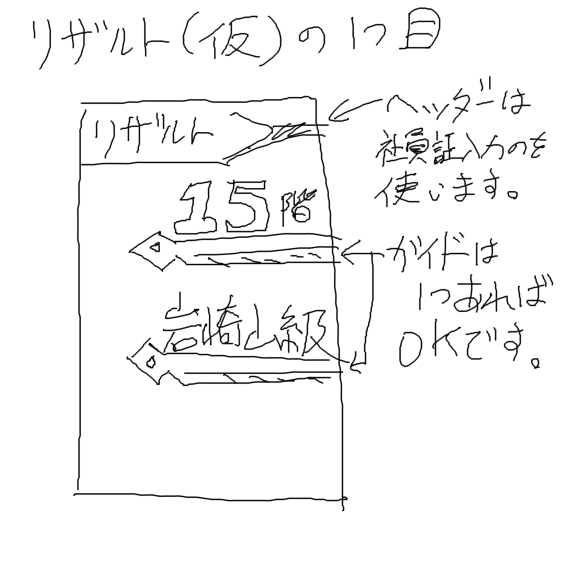 リザルト(仮)の1つ目
リザルト
ヘッダーは
社員証入力のを
使います。
15階
ガイドは
1つあれば
OKです。
岩崎山級